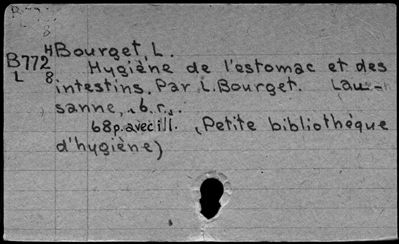 H Bourget, L.
B772 Hygiène de l'estomac et des
L 8 intestins. Par L. Bourget. Lau-
sanne,
68p. avec ill. (Petite bibliothèque
d'hygiène)